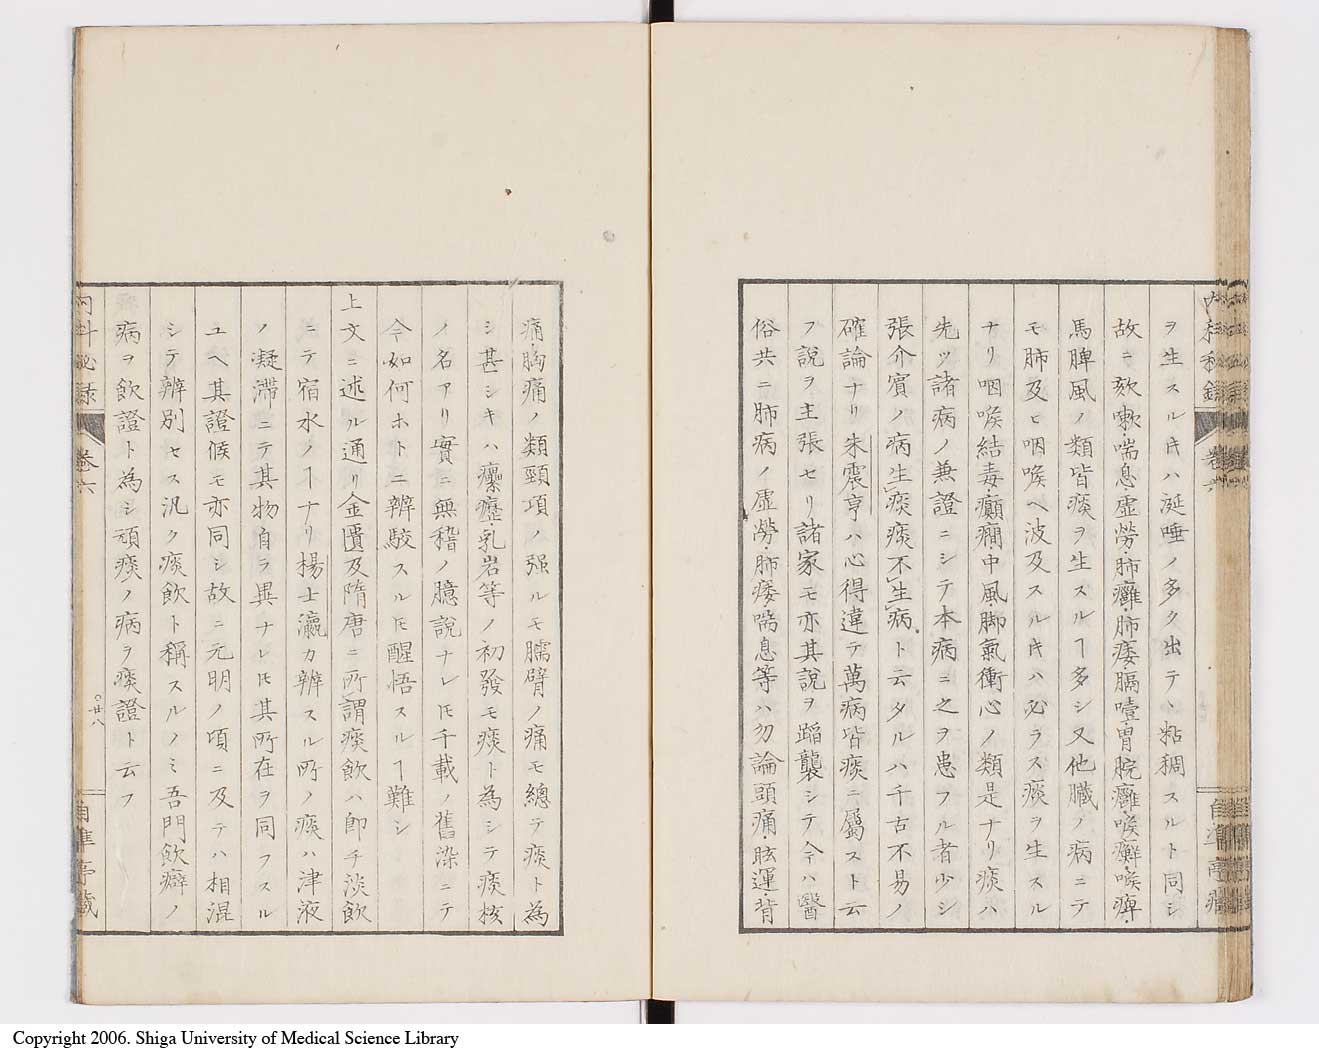 ヲ生スルキハ涎唾ノ多ク出テヽ粘稠スルト同シ
故ニ欬嗽喘息虚勞肺癰肺痿膈噎胃脘癰喉癬喉痺
馬脾風ノ類皆痰ヲ生スルヿ多シ又他臓ノ病ニテ
モ肺及ヒ咽喉ヘ波及スルキハ必ラス痰ヲ生スル
ナリ咽喉結毒癲癇中風脚氣衝心ノ類是ナリ痰ハ
先ッ諸病ノ兼證ニシテ本病ニ之ヲ患フル者少シ
張介賓ノ病生痰痰不生病ト云タルハ千古不易ノ
確論ナリ朱震亨ハ心得違テ萬病皆痰ニ屬スト云
フ説ヲ主張セリ諸家モ亦其説ヲ蹈襲シテ今ハ醫
俗共ニ肺病ノ虚勞肺痿喘息等ハ勿論頭痛眩運背
痛胸痛ノ類頸項ノ强ルモ臑臂ノ痛モ總テ痰ト為
シ甚シキハ瘰癧乳岩等ノ初發モ痰ト為シテ痰核
ノ名アリ實ニ無稽ノ臆説ナレ𪜈千載ノ舊染ニテ
今如何ホトニ辨駁スル𪜈醒悟スルヿ難シ
上文ニ述ル通リ金匱及隋唐ニ所謂痰飲ハ即チ淡飲
ニテ宿水ノヿナリ楊士瀛カ辨スル所ノ痰ハ津液
ノ凝滞ニテ其物自ラ異ナレ𪜈其所在ヲ同フスル
ユヘ其證候モ亦同シ故ニ元明ノ頃ニ及テハ相混
シテ辨別セス汎ク痰飲ト稱スルノミ吾門飲癖ノ
病ヲ飲證ト為シ頑痰ノ病ヲ痰證ト云フ
内科秘録 巻六
廿八
自準亭藏
Copyright 2006. Shiga University of Medical Science Library